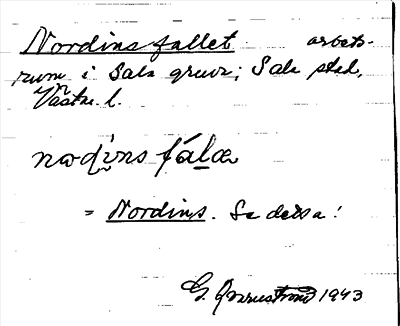 Nordinsfallet arbets-
rum i Sala gruva; Sala stad,
Västm. l.
nodins fálæ
= Nordins. Se detta!
G. 1943